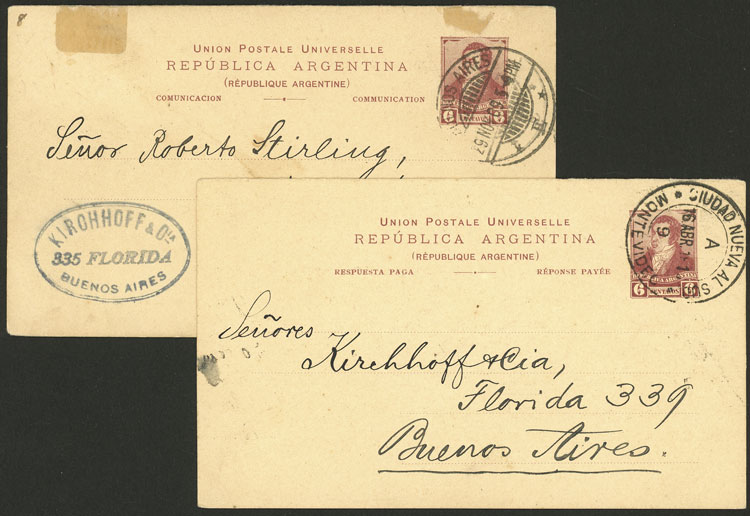 8
UNION POSTALE UNIVERSELLE
REPÚBLICA ARGENTINA
(RÉPUBLIQUE ARGENTINE)
COMUNICACION COMMUNICATION
6 CENTAVOS
BUENOS AIRES
Señor Roberto Stirling,
KIRCHHOFF & Cia
335 FLORIDA
BUENOS AIRES
UNION POSTALE UNIVERSELLE
REPÚBLICA ARGENTINA
(RÉPUBLIQUE ARGENTINE)
RESPUESTA PAGA RÉPONSE PAYÉE
6 CENTAVOS 6
CIUDAD NUEVA AL SUD
MONTEVIDEO
16 ABR
A
9
Señores
Kirchhoff & Cia,
Florida 339
Buenos Aires.